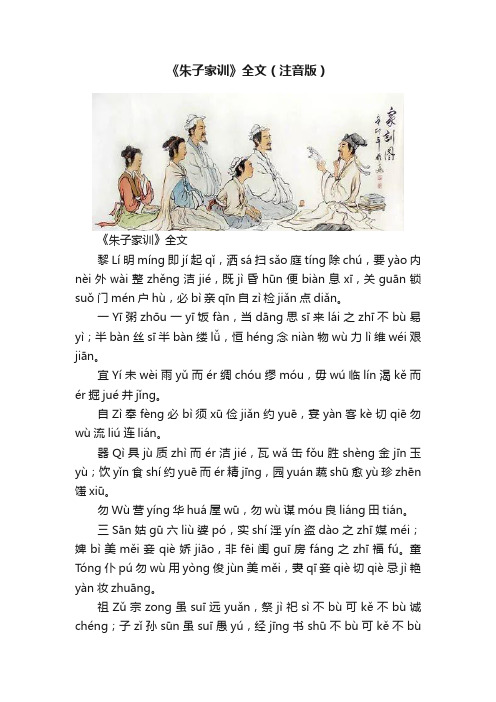 《朱子家训》全文（注音版）
家训图
《朱子家训》全文
黎Lí明míng即jí起qǐ，洒sá扫sǎo庭tíng除chú，要yào内
nèi外wài整zhěng洁jié，既jì昏hūn便biàn息xī，关guān锁
suǒ门mén户hù，必bì亲qīn自zì检jiǎn点diǎn。
一Yī粥zhōu一yī饭fàn，当dāng思sī来lái之zhī不bù易
yì；半bàn丝sī半bàn缕lǚ，恒héng念niàn物wù力lì维wéi艰
jiān。
宜Yí未wèi雨yǔ而ér绸chóu缪móu，毋wú临lín渴kě而
ér掘jué井jǐng。
自Zì奉fèng必bì须xū俭jiǎn约yuē，宴yàn客kè切qiē勿
wù流liú连lián。
器Qì具jù质zhì而ér洁jié，瓦wǎ缶fǒu胜shèng金jīn玉
yù；饮yǐn食shí约yuē而ér精jīng，园yuán蔬shū愈yù珍zhēn
馐xiū。
勿Wù营yíng华huá屋wū，勿wù谋móu良liáng田tián。
三Sān姑gū六liù婆pó，实shí淫yín盗dào之zhī媒méi；
婢bì美měi妾qiè娇jiāo，非fēi闺guī房fáng之zhī福fú。童
Tóng仆pú勿wù用yòng俊jùn美měi，妻qī妾qiè切qiè忌jì艳
yàn妆zhuāng。
祖Zǔ宗zong虽suī远yuǎn，祭jì祀sì不bù可kě不bù诚
chéng；子zǐ孙sūn虽suī愚yú，经jīng书shū不bù可kě不bù